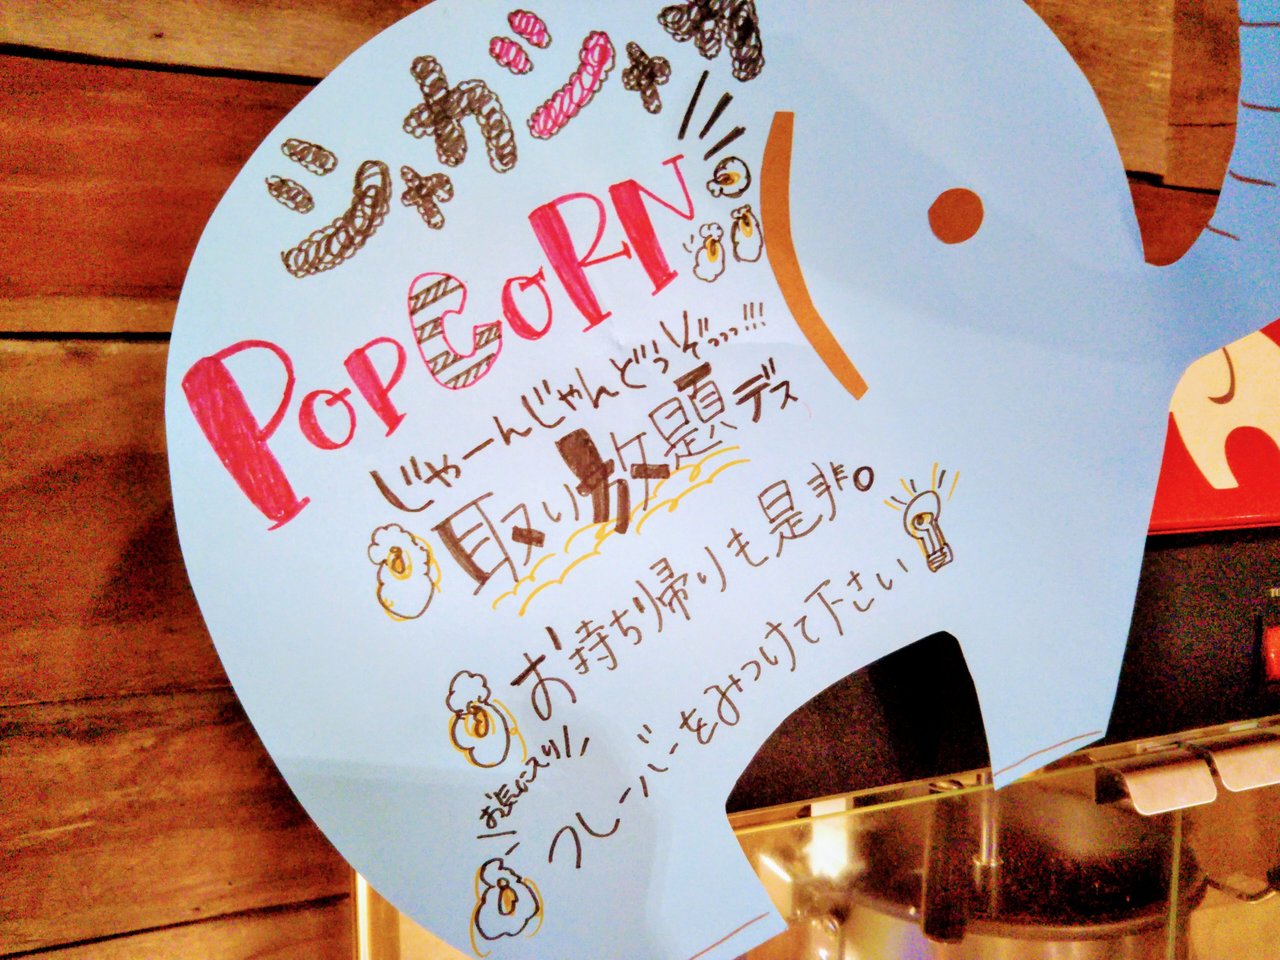 シャカシャカ
POPCORN
じゃーんじゃんどうぞっっっ!!!
取り放題デス
お持ち帰りも是非。
お気に入り
フレーバーをみつけて下さい